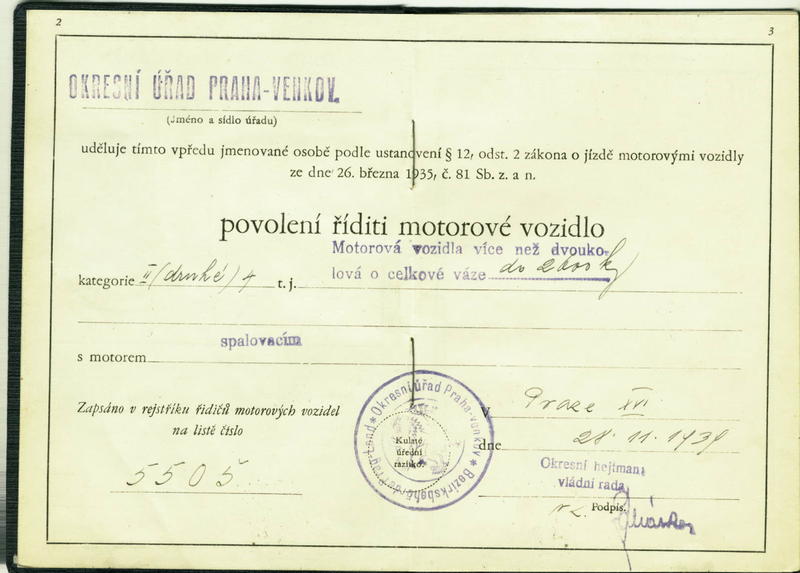 2
3
OKRESNÍ ÚŘAD PRAHA-VENKOV.
(Jméno a sídlo úřadu)
uděluje tímto vpředu jmenované osobě podle ustanovení § 12, odst. 2 zákona o jízdě motorovými vozidly
ze dne 26. března 1935, č. 81 Sb. z. a n.
povolení říditi motorové vozidlo
Motorová vozidla více než dvouko-
kategorie II (druhé) t. j. lová o celkové váze do
spalovacím
s motorem
Zapsáno v rejstříku řidičů motorových vozidel
na listě číslo
5505
Okresní úřad Praha-venkov * Bezirksbehörde Prag-Land *
Kulaté
úřední
razítko.
V Praze XVI
dne 28. 11. 1939
Okresní hejtman:
vládní rada
Podpis.